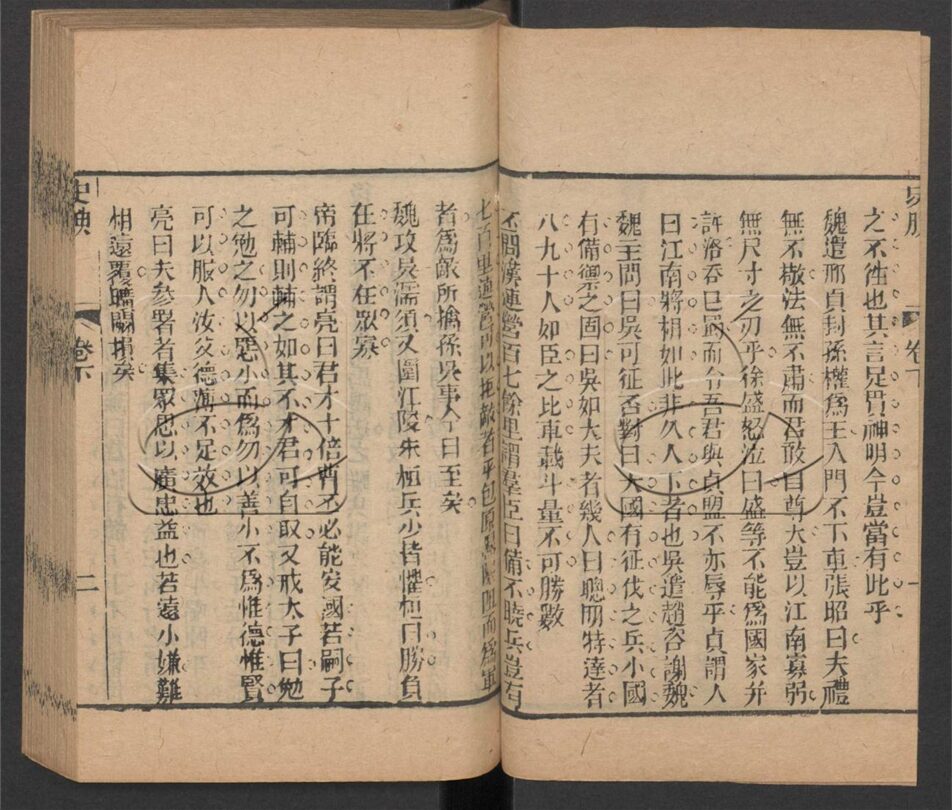 之不往也其言足貫神明今豈當有此乎
魏遣邢貞封孫權為王入門不下車張昭曰夫禮
無不敬法無不肅而君敢自尊大豈以江南寡弱
無尺寸之刃乎徐盛怒泣曰盛等不能為國家并
許洛吞巴蜀而令吾君與貞盟不亦辱乎貞謂人
曰江南將相如此非久人下者也吳遣趙咨謝魏
魏主問曰吳可征否對曰大國有征伐之兵小國
有備禦之固曰吳如大夫者幾人曰聰明特達者
八九十人如臣之比車載斗量不可勝數
丕聞漢連營百七餘里謂羣臣曰備不曉兵豈有
七百里連營可以拒敵者乎包原隰險阻而為軍
者為敵所擒孫吳事今日至矣
魏攻吳濡須又圍江陵朱桓兵少皆懼桓曰勝負
在將不在眾寡
帝臨終謂亮曰君才十倍曹丕必能安國若嗣子
可輔則輔之如其不才君可自取又戒太子曰勉
之勉之勿以惡小而為勿以善小不為惟德惟賢
可以服人汝父德薄不足效也
亮曰夫參署者集眾思以廣忠益也若遠小嫌難
相違覆曠闕損矣
卷下
二
卷下
一